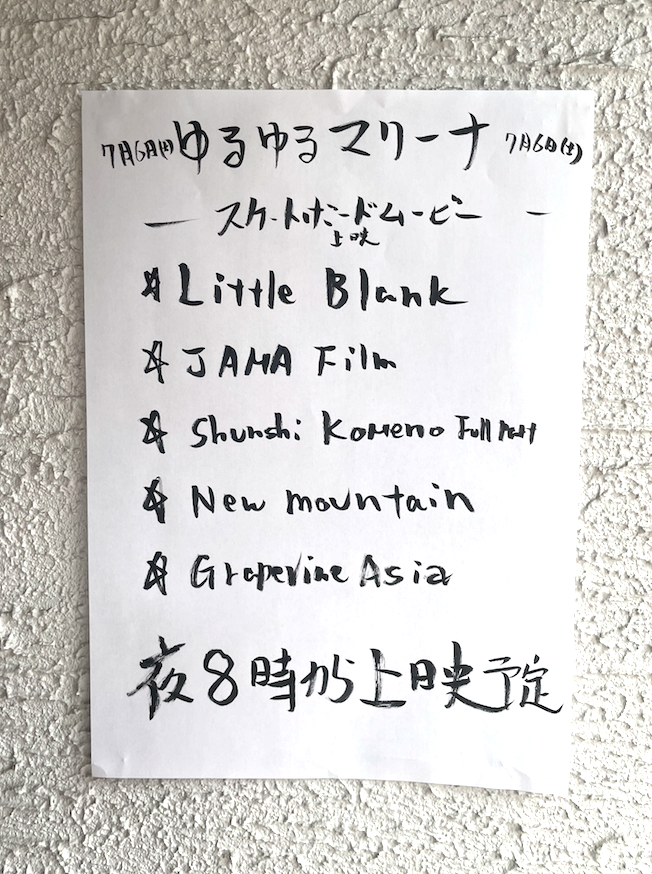 7月6日 ゆるゆるマリーナ 7月6日(土)
— スケートボードムービー —
上映
☆ Little Blank
☆ JAMA Film
☆ Shunshi Komeno Full Part
☆ New mountain
☆ Grapevine Asia
夜8時から上映予定